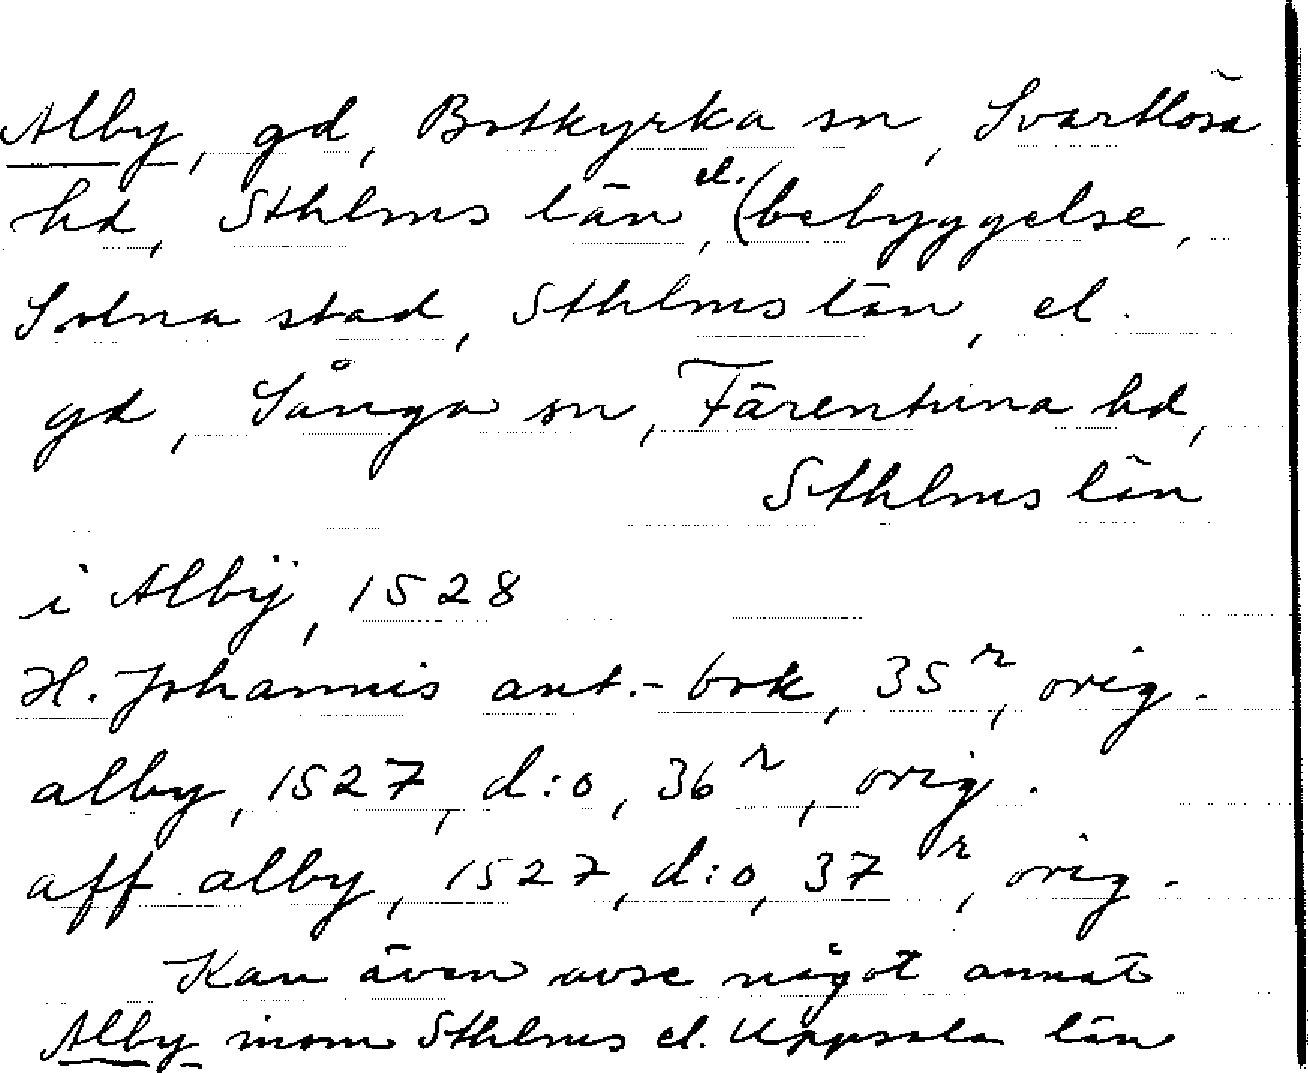 Alby, gd, Botkyrka sn, Svartlösa
hd, Sthlms län, el. (bebyggelse,
Solna stad, Sthlms län, el.
gd, Sånga sn, Färentuna hd,
Sthlms län
i Albÿ, 1528
H. Johannis ant.-bok, 35 r, orig.
alby, 1527, d:o, 36 r, orig.
aff alby, 1527, d:o, 37 r, orig.
Kan även avse något annat
Alby inom Sthlms el. Uppsala län